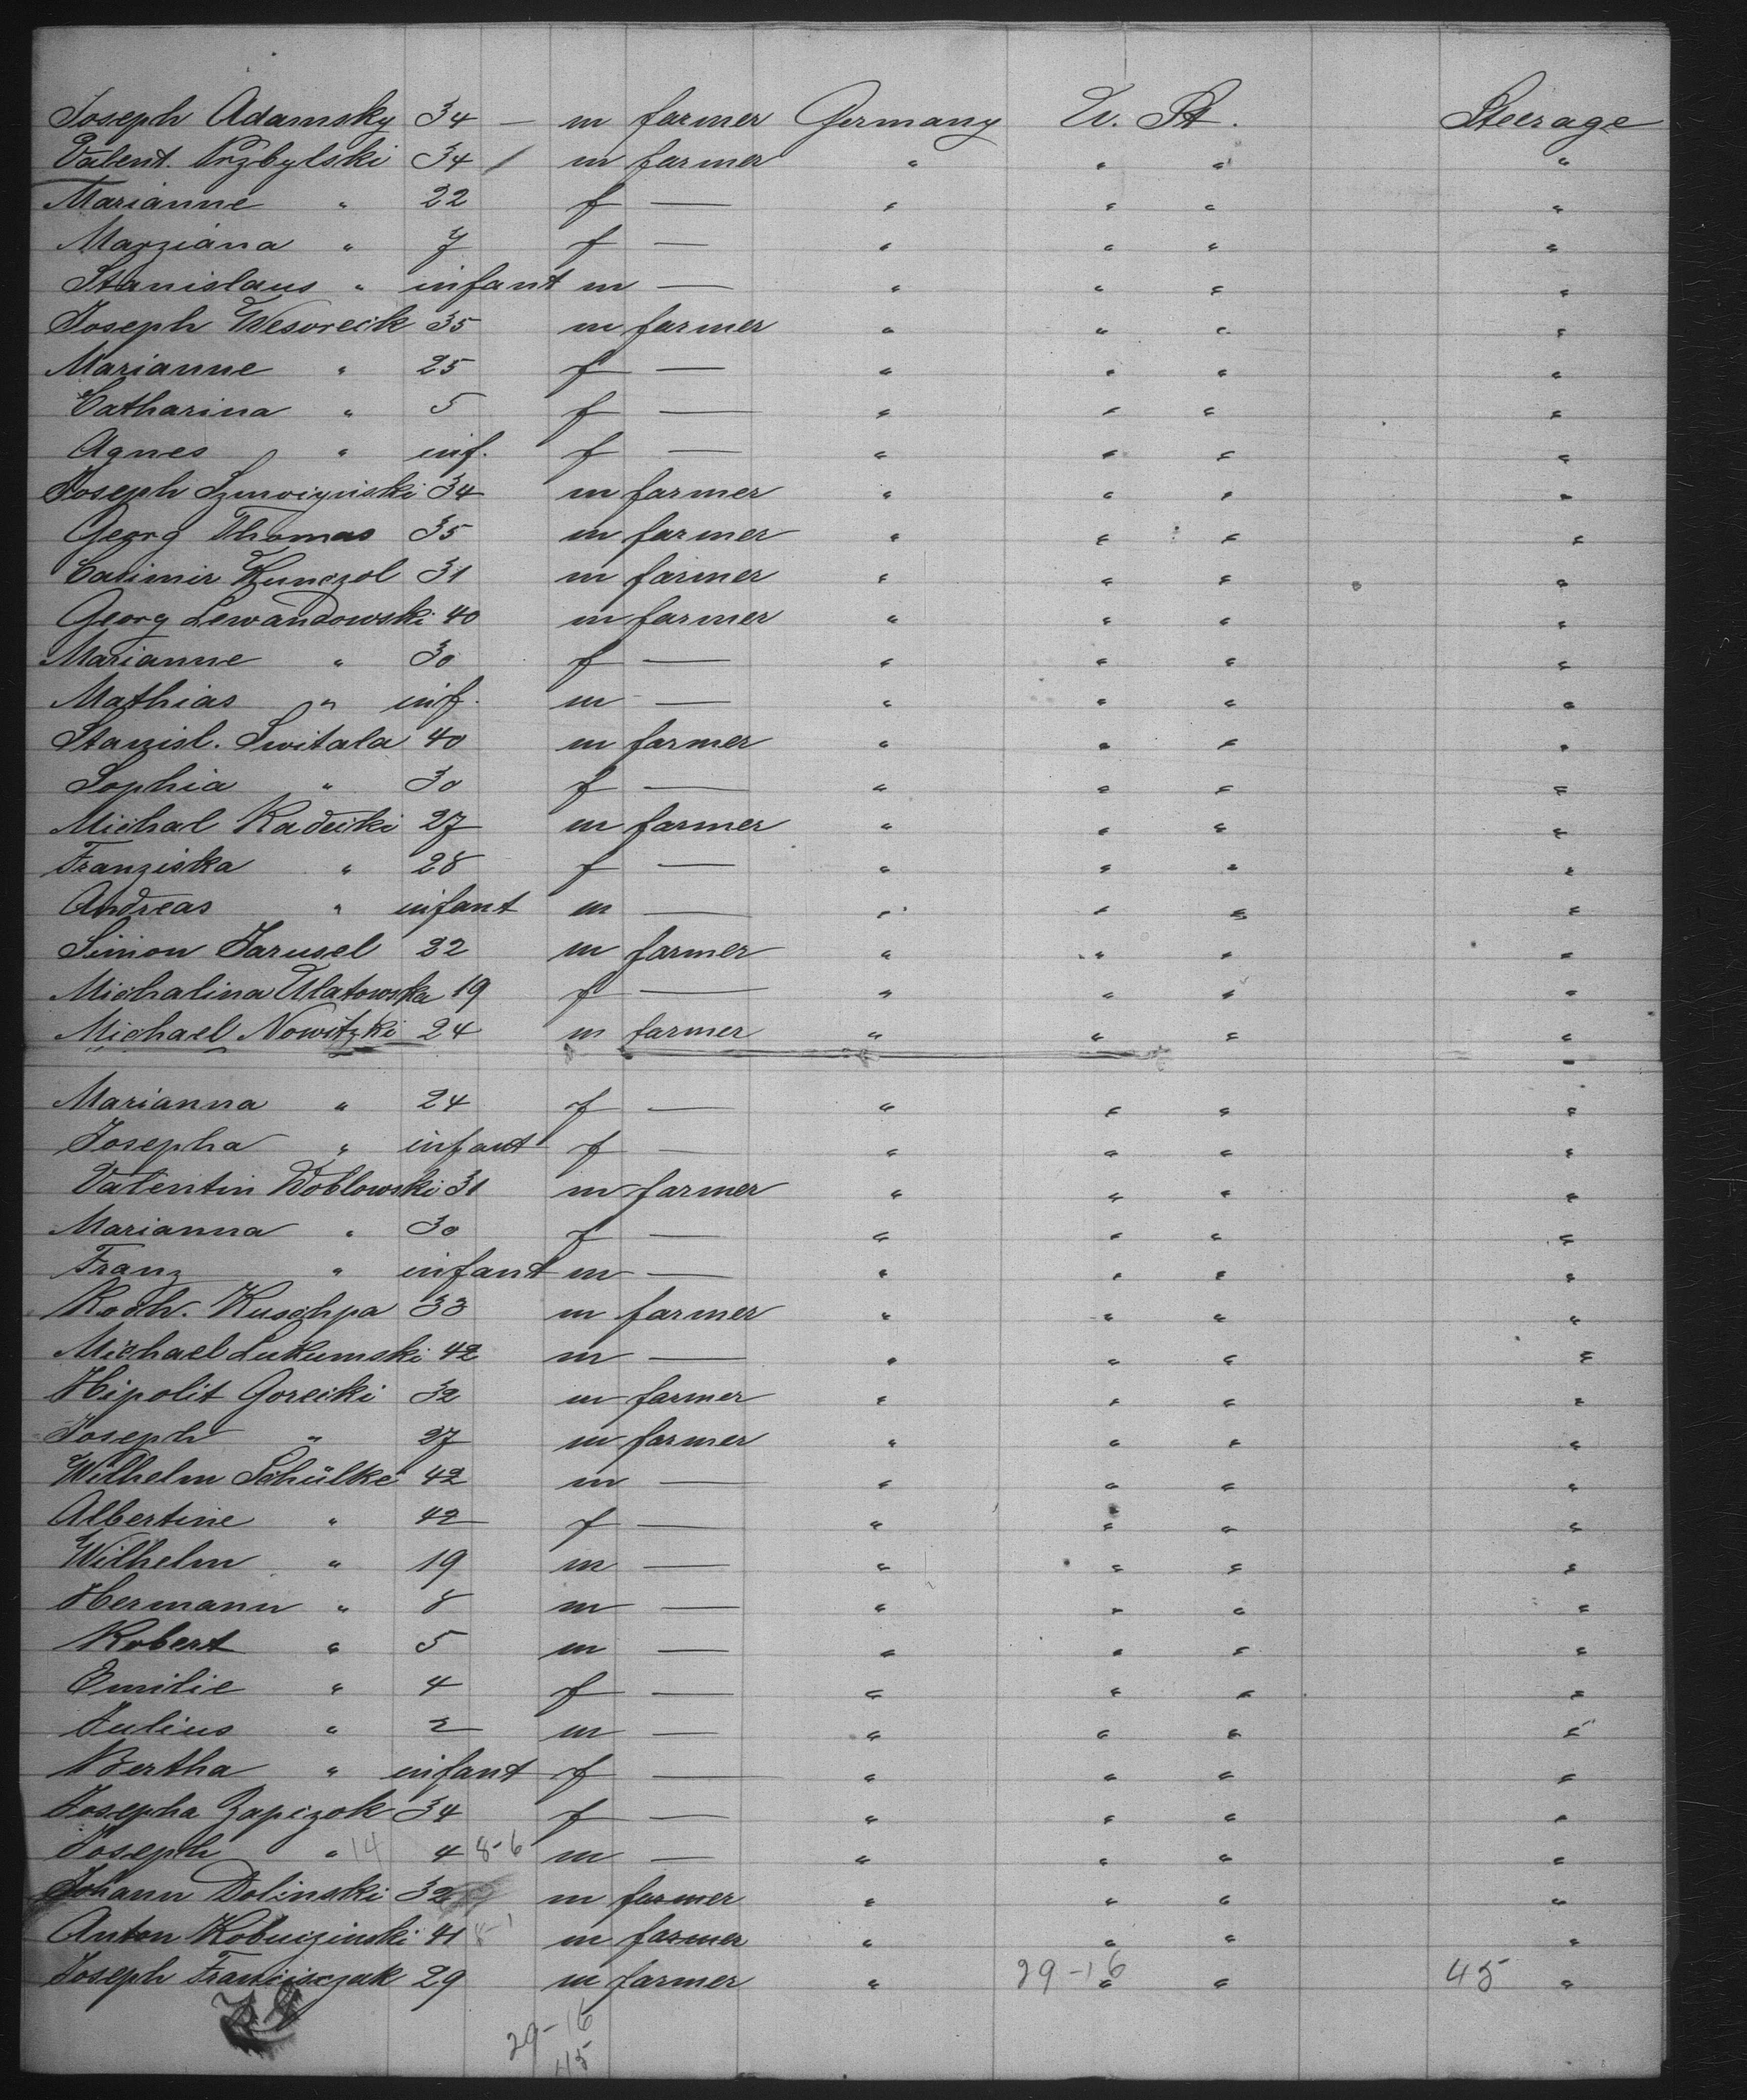 Joseph Adamsky 34 — m farmer Germany U. St. Steerage
Valent. Przbylski 34 / m farmer " " " "
Marianne " 22 f — " " " "
Marziana " 7 f — " " " "
Stanislaus " infant m — " " " "
Joseph Wesoreck 35 m farmer " " " "
Marianne " 25 f — " " " "
Catharina " 5 f — " " " "
Agnes " inf. f — " " " "
Joseph 34 m farmer " " " "
Georg Thomas 35 m farmer " " " "
Casimir Kunczol 31 m farmer " " " "
Georg Lewandowski 40 m farmer " " " "
Marianne " 30 f — " " " "
Mathias " inf. m — " " " "
Stanisl. Switala 40 m farmer " " " "
Sophia " 30 f — " " " "
Michal Radecki 27 m farmer " " " "
Franziska " 28 f — " " " "
Andreas " infant m — " " " "
Simon Jarusel 22 m farmer " " " "
Michalina Ulatowska 19 f — " " " "
Michael Nowitzki 24 m farmer " " " "
"
Marianna " 24 f — " " " "
Josepha " infant f — " " " "
Valentin Woblowski 31 m farmer " " " "
Marianna " 30 f — " " " "
Franz " infant m — " " " "
Roch. Kuschpa 33 m farmer " " " "
Michael Lukumski 42 m — " " " "
Hipolit Gorecki 32 m farmer " " " "
Joseph " 27 m farmer " " " "
Wilhelm Schülke 42 m — " " " "
Albertine " 42 f — " " " "
Wilhelm " 19 m — " " " "
Hermann " 8 m — " " " "
Robert " 5 m — " " " "
Emilie " 4 f — " " " "
Julius " 2 m — " " " "
Bertha " infant f — " " " "
Josepha Zapczok 34 f — " " " "
Joseph " 14 4 8-6 m — " " " "
Johann Dolinski 32 m farmer " " " "
Anton 41 m farmer " " " "
Joseph Franciszak 29 m farmer " 29-16 " " 45 "
29-16
45